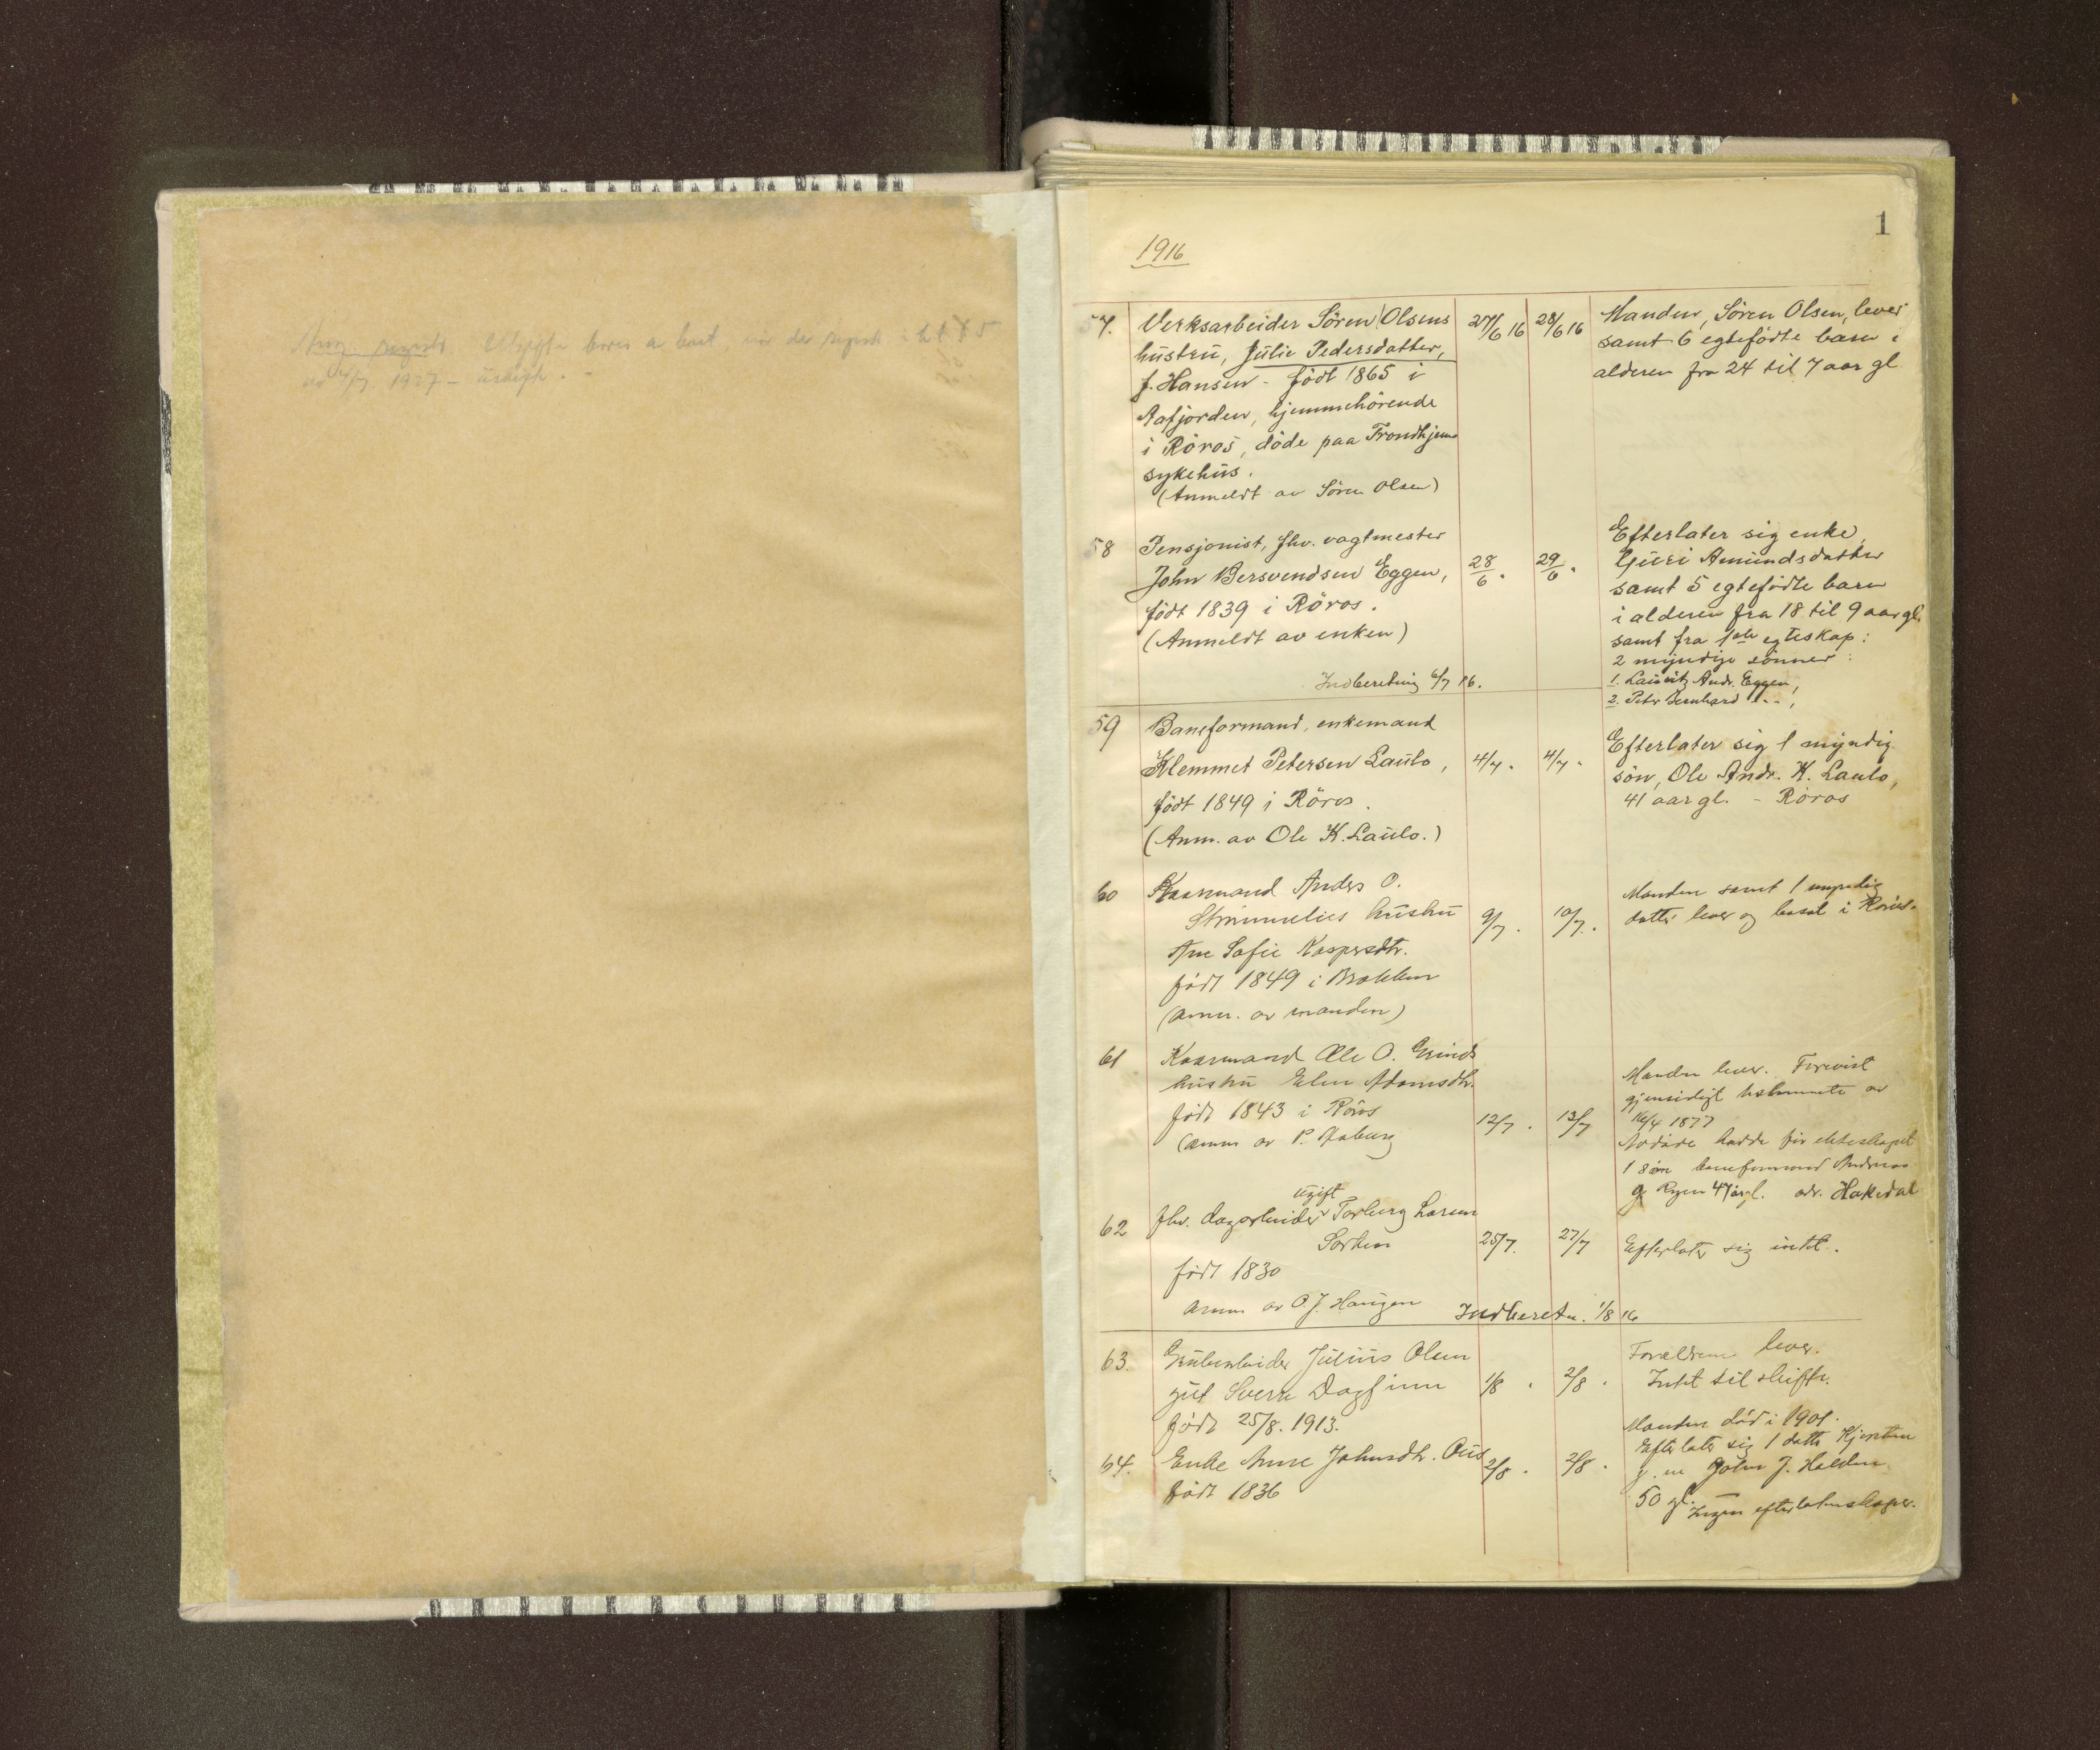 1
1916
57. Verksarbeider Sören Olsens 27/6 16 28/6 16 Manden, Sören Olsen, lever
hustru, Julie Pedersdatter, samt 6 egtefödte barn i
f. Hansen - födt 1865 i alderen fra 24 til 7 aar gl
Aafjorden, hjemmehörende
i Röros, döde paa Trondhjems
sykehus.
(Anmeldt av Sören Olsen)
58 Pensjonist, fhv. vagtmester Efterlater sig enke,
John Bersvendsen Eggen, 28/6 " 29/6 " Guri Amundsdatter
födt 1839 i Röros. samt 5 egtefödte barn
(Anmeldt av enken) i alderen fra 18 til 9 aar gl.
samt fra 1ste egteskap:
2 myndige sönner:
Indberetning 6/7 16. 1. Lauritz Andr. Eggen,
2. Peter Bernhard " ,
59 Baneformand, enkemand Efterlater sig 1 myndig
Klemmet Petersen Laulo, 4/7 " 4/7 " sön, Ole Andr. K. Laulo,
födt 1849 i Röros. 41 aar gl. - Röros
(Anm. av Ole K. Laulo.)
60 Kaarmand Anders O. Manden samt 1 myndig
hustru 9/7 . 10/7 . datter lever og bosat i Röros.
Ane Sofie Kaspersdtr.
födt 1849 i Brekken
(anm. av manden)
61 Kaarmand Ole O. Grinds Manden lever. Forevist
hustru Elen Adamsdtr. gjensidigt testamente av
födt 1843 i Röros 12/7 . 13/7 16/4 1877
(anm av P. Aaberg Avdöde hadde för ekteskapet
1 sön baneformand Andreas
G. Ryen 47 år gl. adr. Hakedal
ugift
62 fhv. dagarbeider Torberg Larsen
25/7. 27/7 Efterlater sig intet.
födt 1830
anm av O. J. Haugen Indberetn. 1/8 16
63. Grubearbeider Julius Olsen Forældrene lever.
gut Sverre Dagfinn 1/8 . 2/8 . Intet til skifte.
födt 25/8. 1913.
Manden död i 1901.
64. Enke Anne Johnsdtr. 2/8 . 2/8 . Efterlater sig 1 datter Kjersten
födt 1836 g. m John J. Halden
50 gl.
Ingen efterladenskaper.